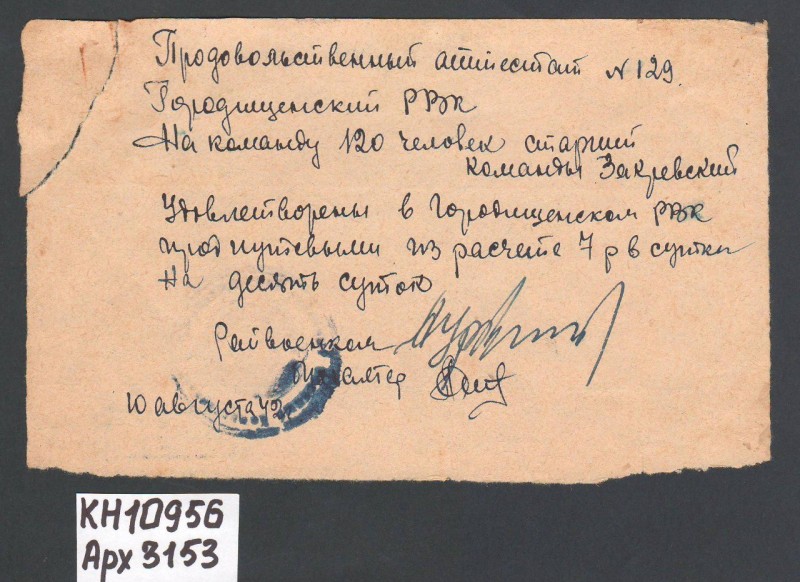 Продовольственный аттестат N 129
Городищенский РВК
На команду 120 человек старший
команды Закревский
Удовлетворены в Городищенском РВК
прод путевыми из расчета 7 р в сутки
на десять суток
Райвоенком
10 августа 42 г
КН10956
Арх 3153